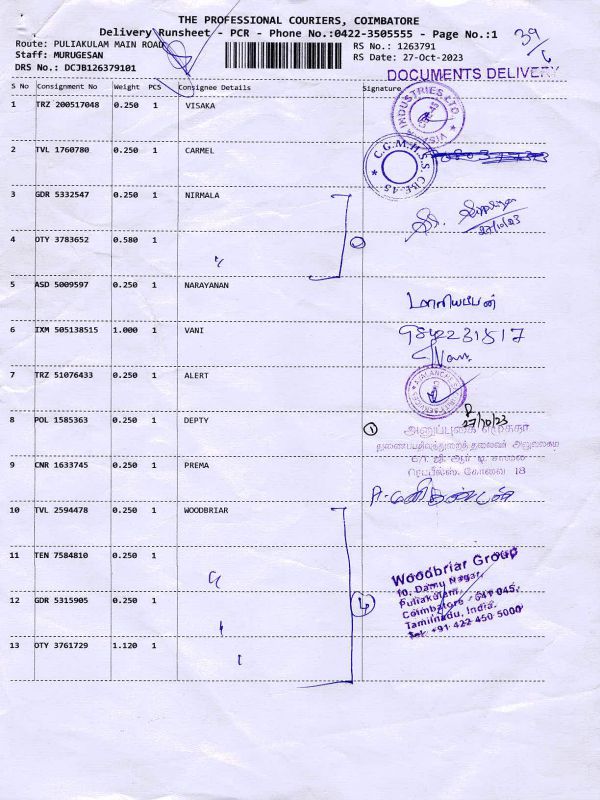 THE PROFESSIONAL COURIERS, COIMBATORE
Delivery Runsheet - PCR - Phone No.:0422-3505555 - Page No.:1
39
Route: PULIAKULAM MAIN ROAD
RS No.: 1263791
Staff: MURUGESAN
RS Date: 27-Oct-2023
DRS No.: DCJB126379101
DOCUMENTS DELIVERY
S No Consignment No Weight PCS Consignee Details Signature
1 TRZ 200517048 0.250 1 VISAKA
2 TVL 1760780 0.250 1 CARMEL
C.G.M.H.S.S. CBE-45
3 GDR 5332547 0.250 1 NIRMALA
27/10/23
4 OTY 3783652 0.580 1
5 ASD 5009597 0.250 1 NARAYANAN
மாரியப்பன்
6 IXM 505138515 1.000 1 VANI
7 TRZ 51076433 0.250 1 ALERT
27/10/23
8 POL 1585363 0.250 1 DEPTY
1
அனுப்புகை எழுத்தர்
துணைப்பதிவுத்துறைத் தலைவர் அலுவலகம்
கோவை 18
9 CNR 1633745 0.250 1 PREMA
10 TVL 2594478 0.250 1 WOODBRIAR
11 TEN 7584810 0.250 1
Woodbriar Group
10, Damu Nagar,
Puliakulam,
Coimbatore - 641 045.
Tamilnadu, India.
Tel: +91 422 450 5000
12 GDR 5315905 0.250 1
4
13 OTY 3761729 1.120 1